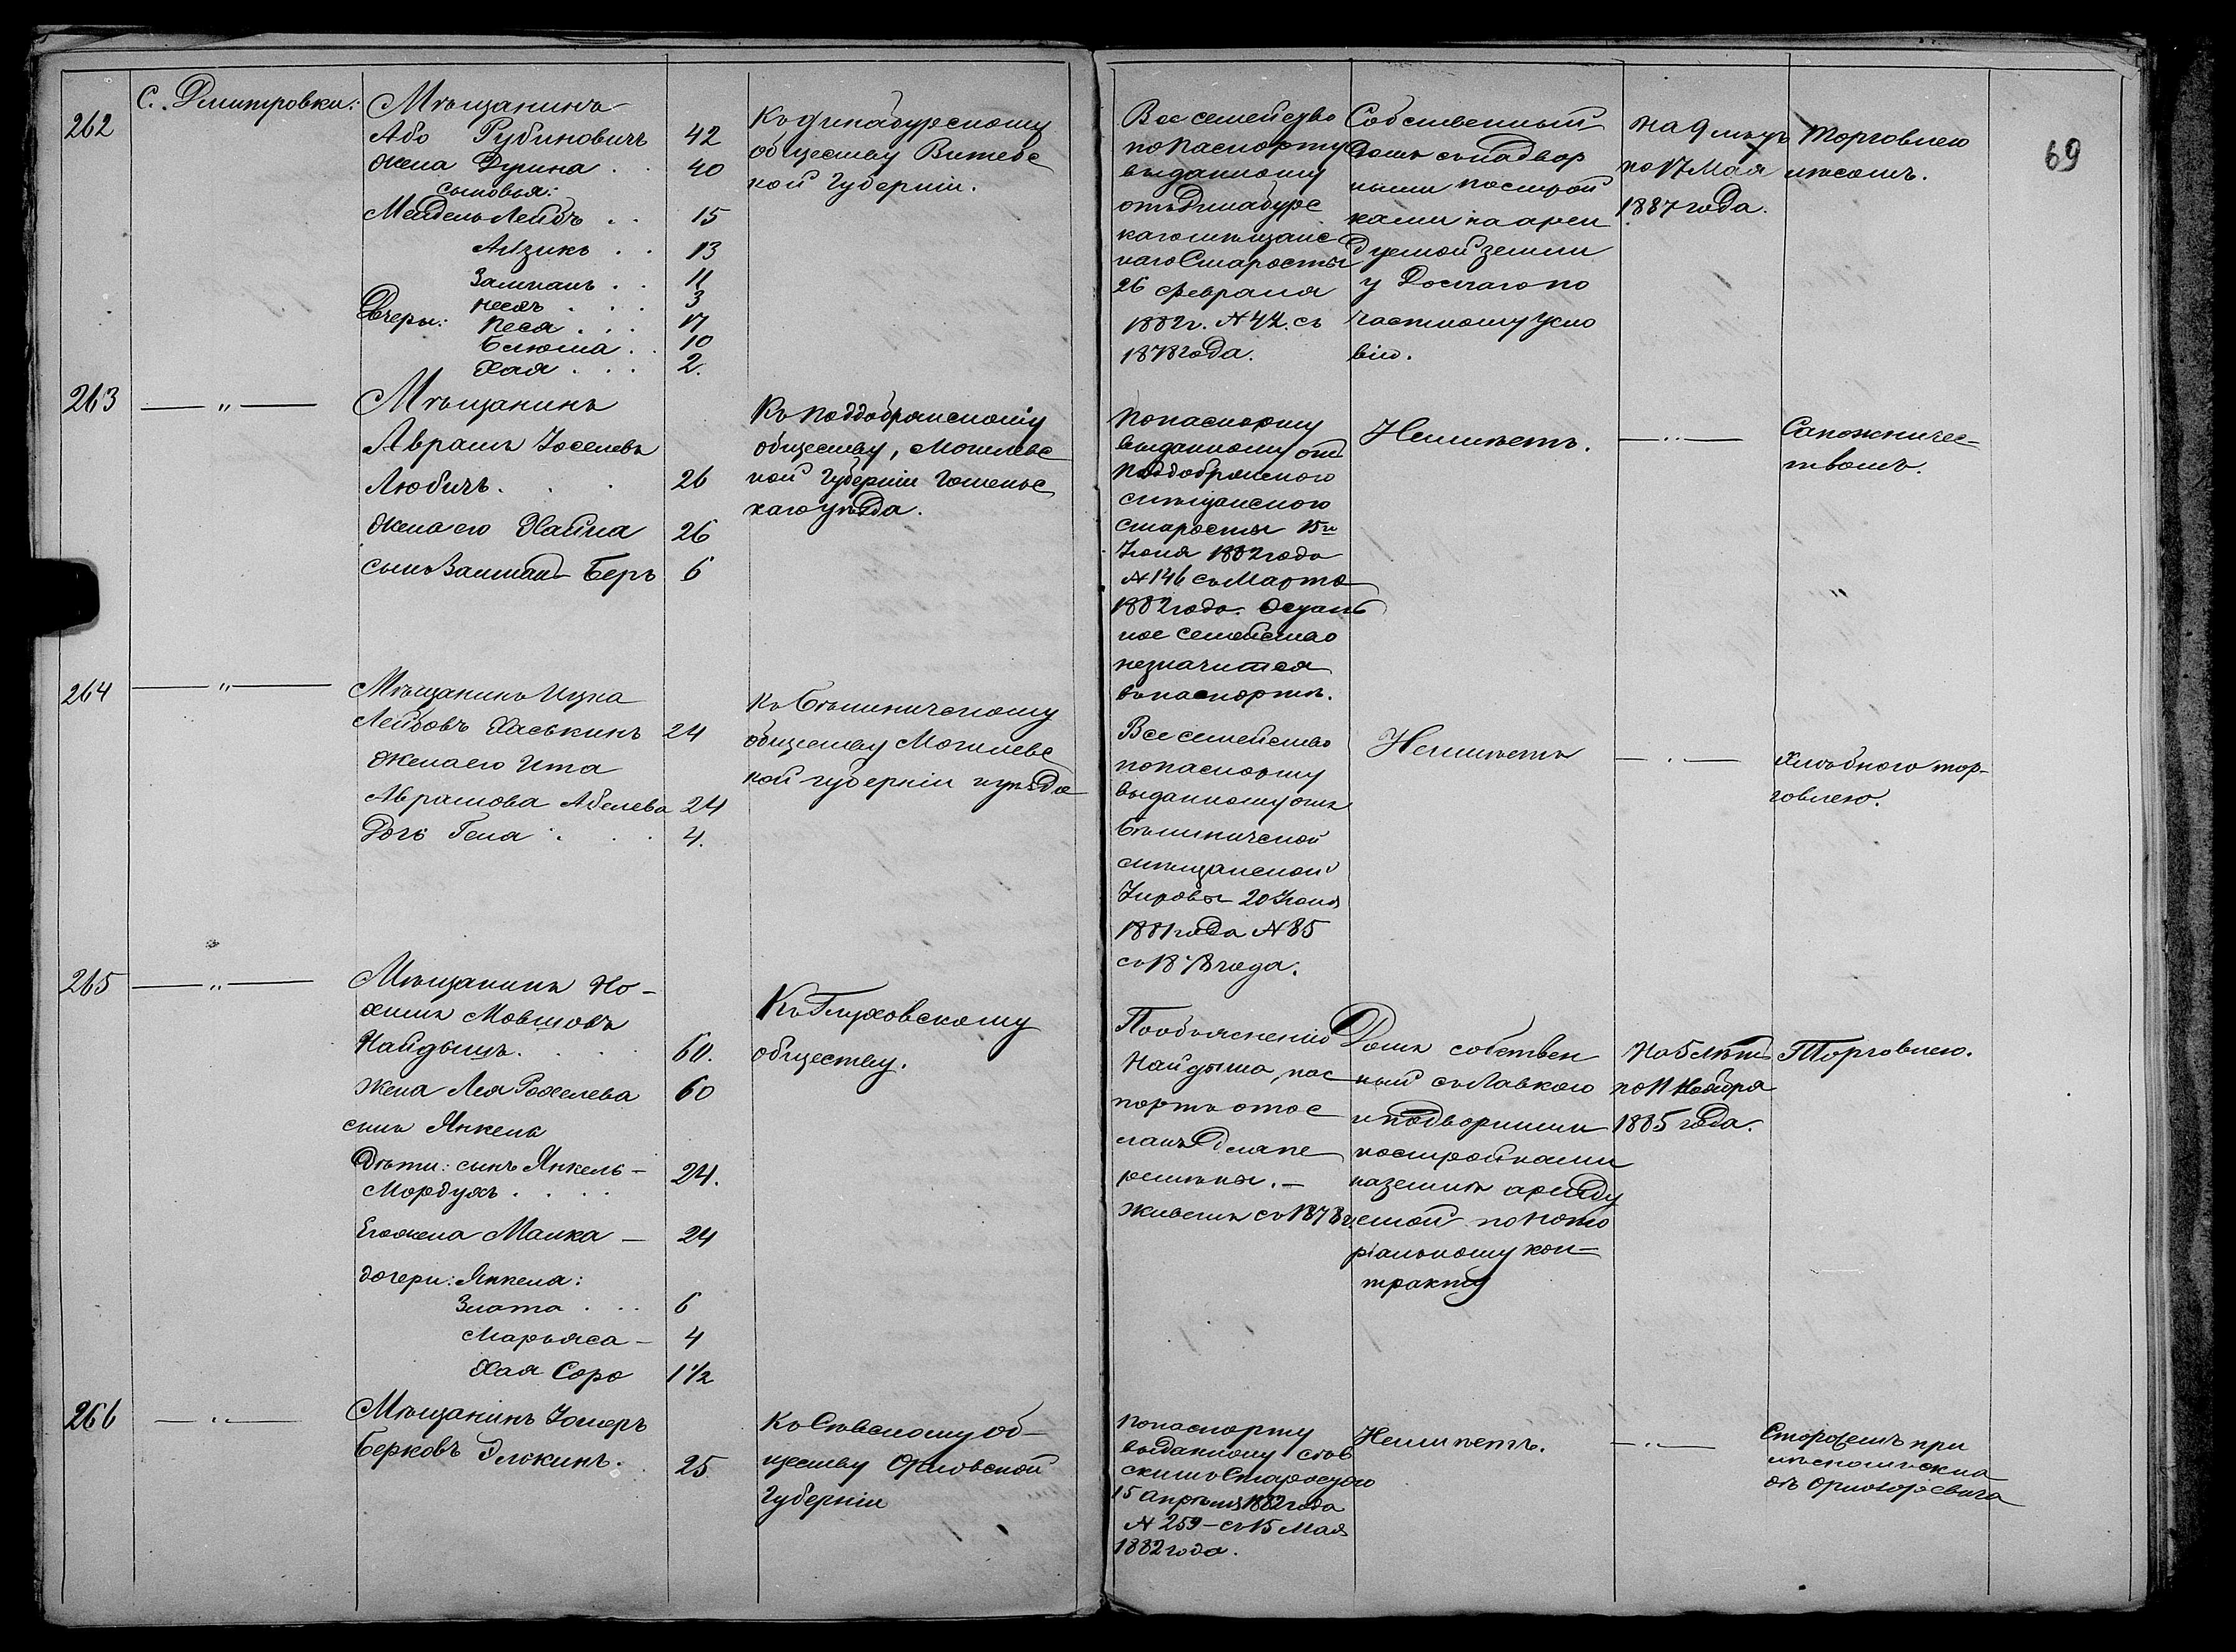 69
262
С. Дмитровки:
Мѣщанинъ
Або Рубиновичъ 42
Жена Дрина . . 40
сыновья:
Мендель Лейбъ . . 15
Айзикъ . . 13
Залманъ . . 11
3
Дочери: Песя . . . 17
Блюма . . 10
Хая . . . 2.
Къ Динабургскому
обществу Витебс
кой Губерніи.
Все семейство
по паспорту
выданному
отъ Динабургс
каго мѣщанс
каго Старосты
26 февраля
1882 г. N 42. съ
1878 года.
Собственный
домъ съ надвор
ными построй
ками на арен
дуемой земли
у
частному усло
вію.
на 9 лѣтъ
по 17 Мая
1887 года.
Торговлею
мясомъ.
263
— „ —
Мѣщанинъ
Аврамъ Іоселевъ
Любичъ . . . 26
Жена его Хайна 26
сынъ Залманъ Беръ 6
Къ Поддобрянскому
обществу, Могилевс
кой Губерніи Гомельс
каго уѣзда.
По паспорту
выданному отъ
Поддобрянского
мѣщанского
старосты 15го
Іюня 1882 года
N 146 съ Марта
1882 года. Осталь
ное семейство
незначится
въ паспортѣ.
Неимѣетъ.
— „ —
Сапожничес-
твомъ.
264
— „ —
Мѣщанинъ Ицка
Лейбовъ Хаськинъ 24
Жена его Ита
Абрамова Абелева 24
Дочь Геля . . . 4.
Къ Бѣлиничскому
обществу Могилевс
кой губерніи и уѣзда
Все семейство
по паспорту
выданному отъ
Бѣлиничской
мѣщанской
Управы 20 Іюня
1881 года N 85
съ 1878 года.
Неимѣетъ
— „ —
Хлѣбного тор-
говлею.
265
— „ —
Мѣщанинъ Но-
химъ Мовшовъ
Найдышъ . . . 60.
Жена Лея Рохелева 60
сынъ Янкель
Дѣти: сынъ Янкель-
Мордухъ . . . 24.
Его жена Малка — 24
дочери: Янкеля:
Злата . . . 6
Марьяса — 4
Хая Сора 1½
Къ Глуховскому
обществу.
По объясненію
Найдыша, пас
портъ отос
ланъ для пе
ремѣны. —
живетъ съ 1878 г.
Домъ собствен
ный съ Лавкою
и подворными
постройками
на земли аренду
емой по нота
ріальному кон-
тракту
На 5 лѣтъ
по 11 Ноября
1885 года.
Торговлею.
266
— „ —
Мѣщанинъ Іомеръ
Берковъ Элькинъ. . 25
Къ Сѣвскому об-
ществу Орловской
Губерніи
По паспорту
выданному Сѣв
скимъ Старостою
15 Апрѣля 1882 года
N 259 — съ 15 Мая
1882 года.
Неимѣетъ.
— „ —
Сторожемъ при